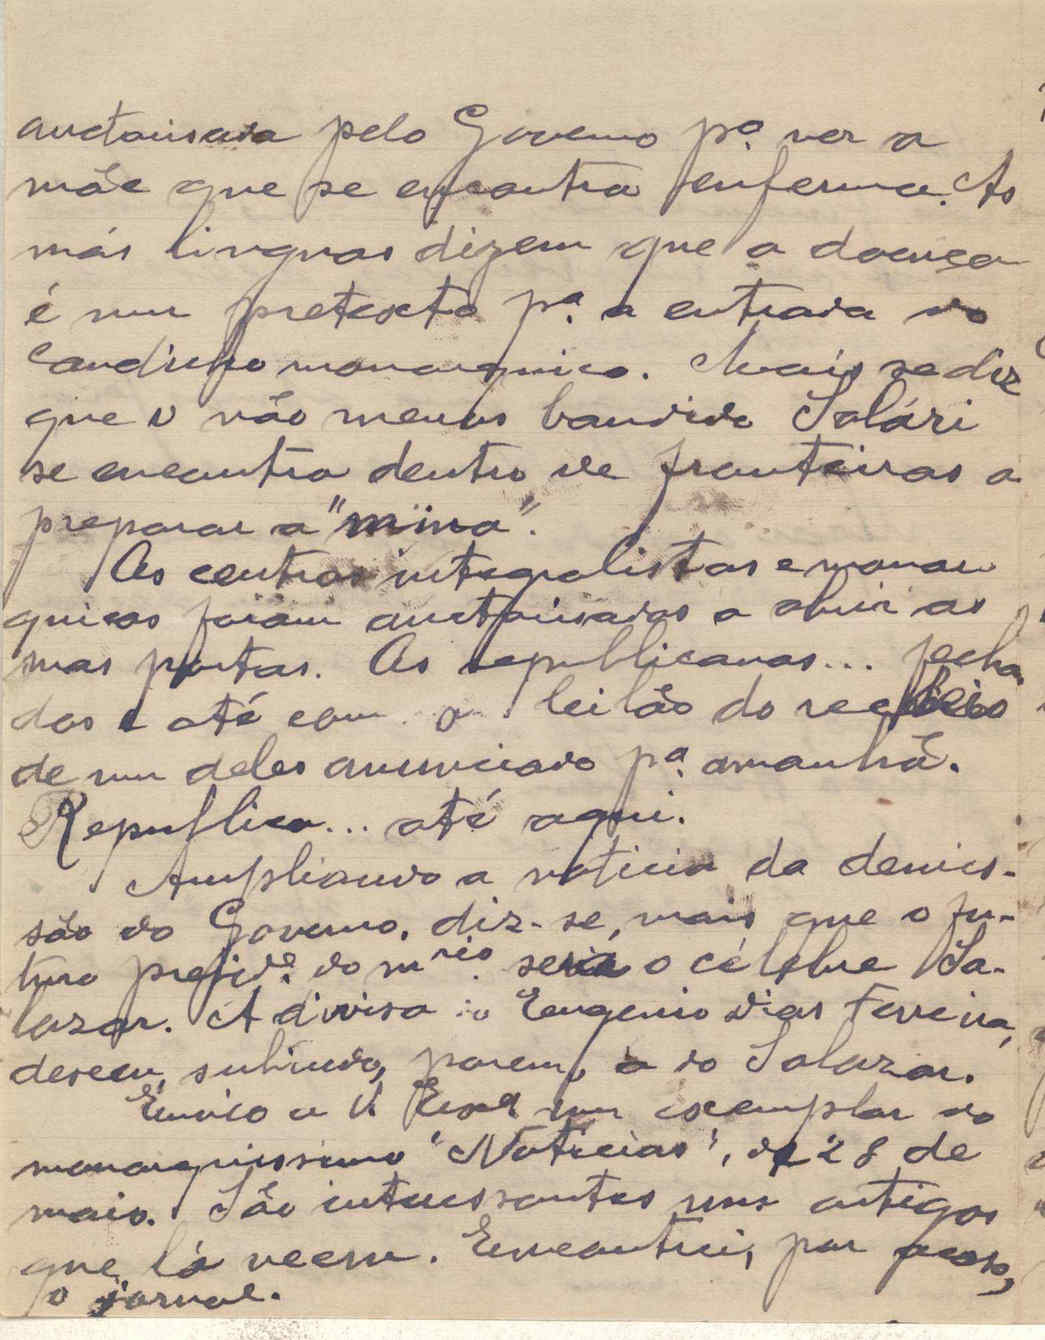 auctorisada pelo Governo pª. ver a
mãe que se encontra enferma. As
más linguas dizem que a doença
é um pretexto pª. a entrada do
caudilho monarquico. Mais se diz
que o não menos bandido Solári
se encontra dentro de fronteiras a
preparar a "mina".
Os centros integralistas e monar
quicos foram auctorisados a abrir as
suas portas. Os republicanos... fecha
dos e até com o leilão do recheio
de um deles anunciado pª. amanhã.
Republica... até aqui.
Ampliando a noticia da demis-
são do Governo, diz-se, mais que o fu-
turo preside. do mrio. será o célebre Sa-
lazar. A divisa Eugenio Dias Ferreira,
desceu, subindo, porem, a do Salazar.
Envio a V. Exª um exemplar do
monarquissimo "Noticias", de 28 de
maio. São interessantes uns artigos
que lá veem. Encontrei, por acaso,
o jornal.